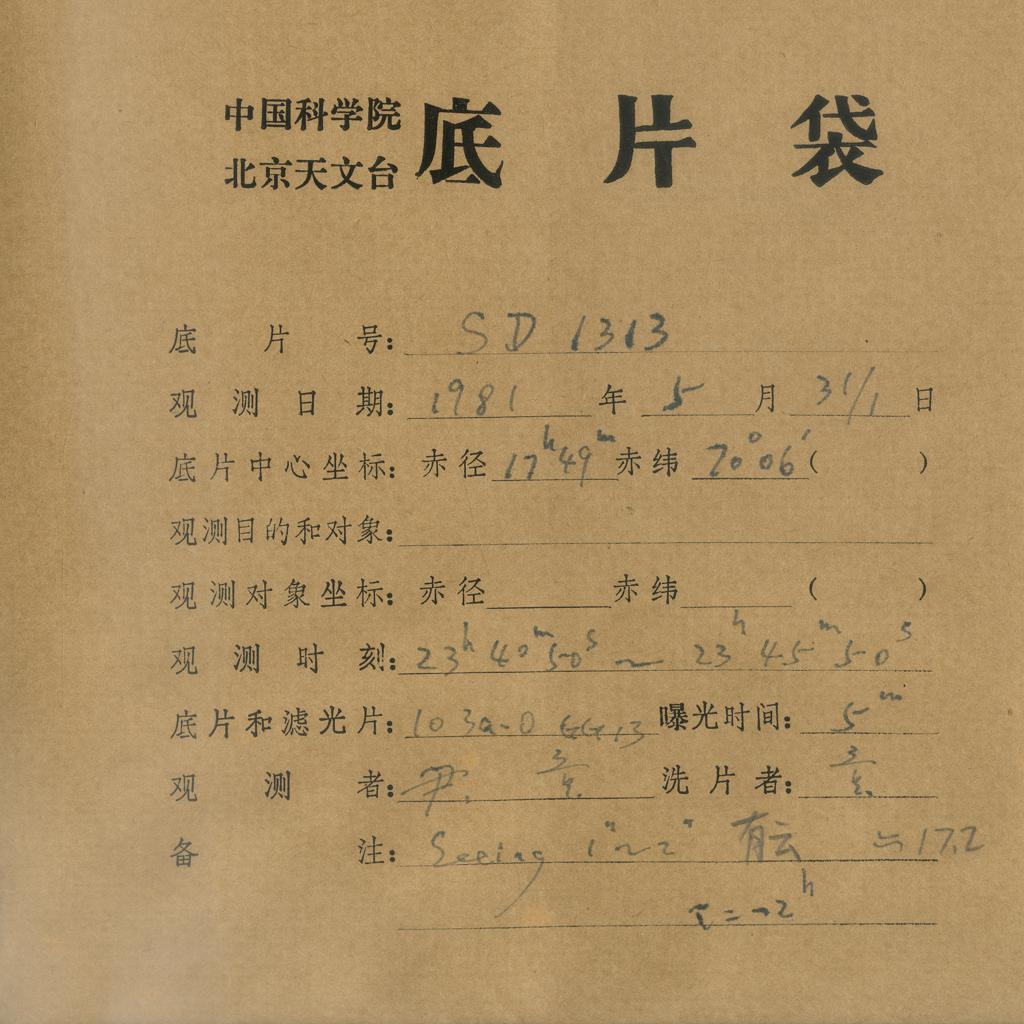 中国科学院
北京天文台
底片袋
底片号: SD 1313
观测日期: 1981 年 5 月 31/1 日
底片中心坐标: 赤径 17h49m 赤纬 70°06′ ( )
观测目的和对象:
观测对象坐标: 赤径 赤纬 ( )
观测时刻: 23h 40m 50s ~ 23h 45m 50s
底片和滤光片: 103a-O GG13 曝光时间: 5m
观测者: 洗片者:
备注: Seeing 1"~2" 有云 17.2